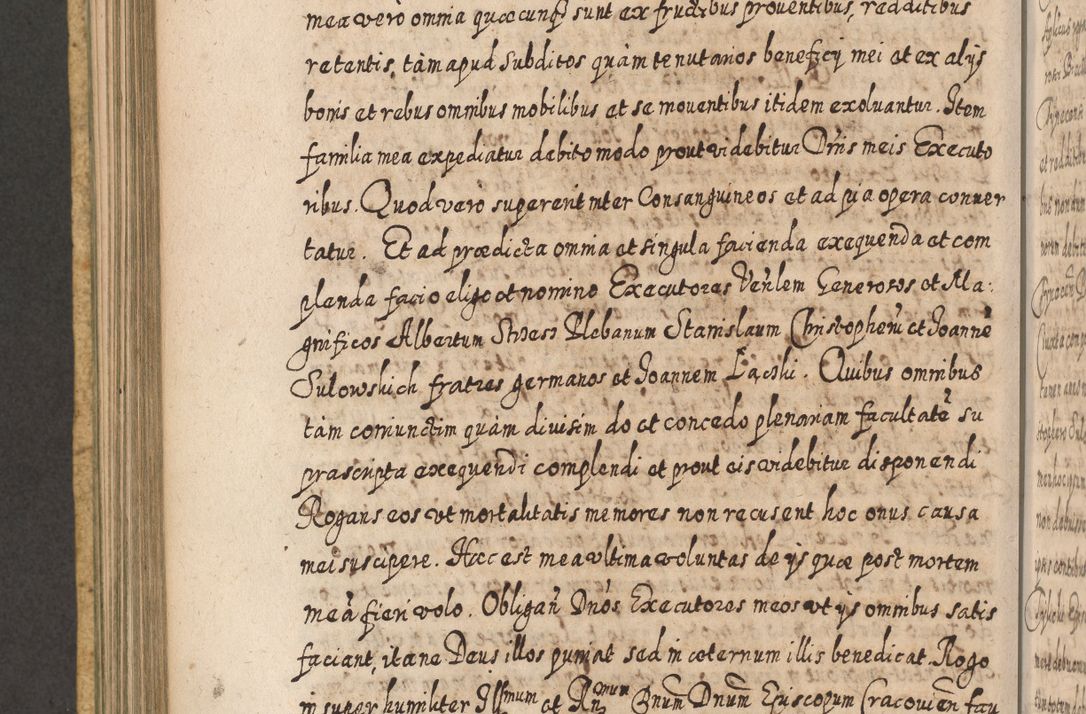 mea vero omnia quæcunq sunt ex fructibus proventibus, redditibus
retentis, tàm apud Subditos quàm tenutarios beneficij mei et ex alijs
bonis et rebus omnibus mobilibus et se mouentibus itidem exoluantur. Item
familia mea expediatur debito modo prout videbitur Dnis meis Executo
ribus. Quod vero supererit inter Consanguineos et ad pia opera conuer
tatur. Et ad prædicta omnia et singula facienda exequenda et com
plenda facio eligo et nomino Executores Venlem Generosos et Ma:
gnificos Albertum Plebanum Stanislaum Christopherū et Joannē
Sulowskich fratres germanos et Joannem Łącki. Quibus omnibus
tàm coniunctim quàm diuisim do et concedo plenariam facultatē su
prascripta exequendi complendi et prout eis videbitur disponendi
Rogans eos vt mortalitatis memores non recusent hoc onus causa
mei suscipere. Hæc est mea vltima voluntas de ijs quæ post mortem
meā fieri volo. Obligañ Dnos Executores meos vt ijs omnibus satis
faciant, ita ne Deus illos puniat sed in æternum illis benedicat. Rogo
insuper humiliter Illmum et Rmum Dnum Dnum Episcopum Cracouien fau